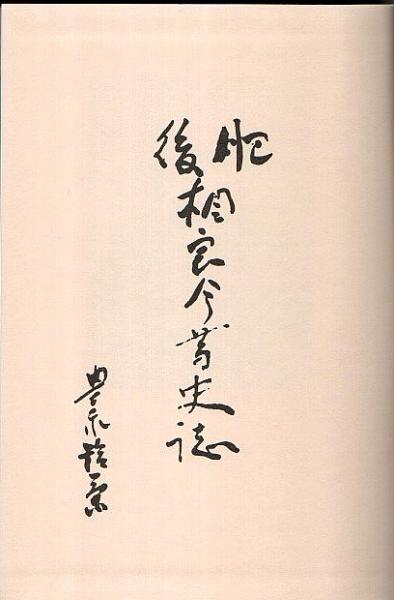 肥後
相良今昔史誌
豊永